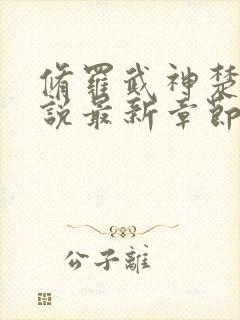 脩羅武神楚
說最新章節
公子離